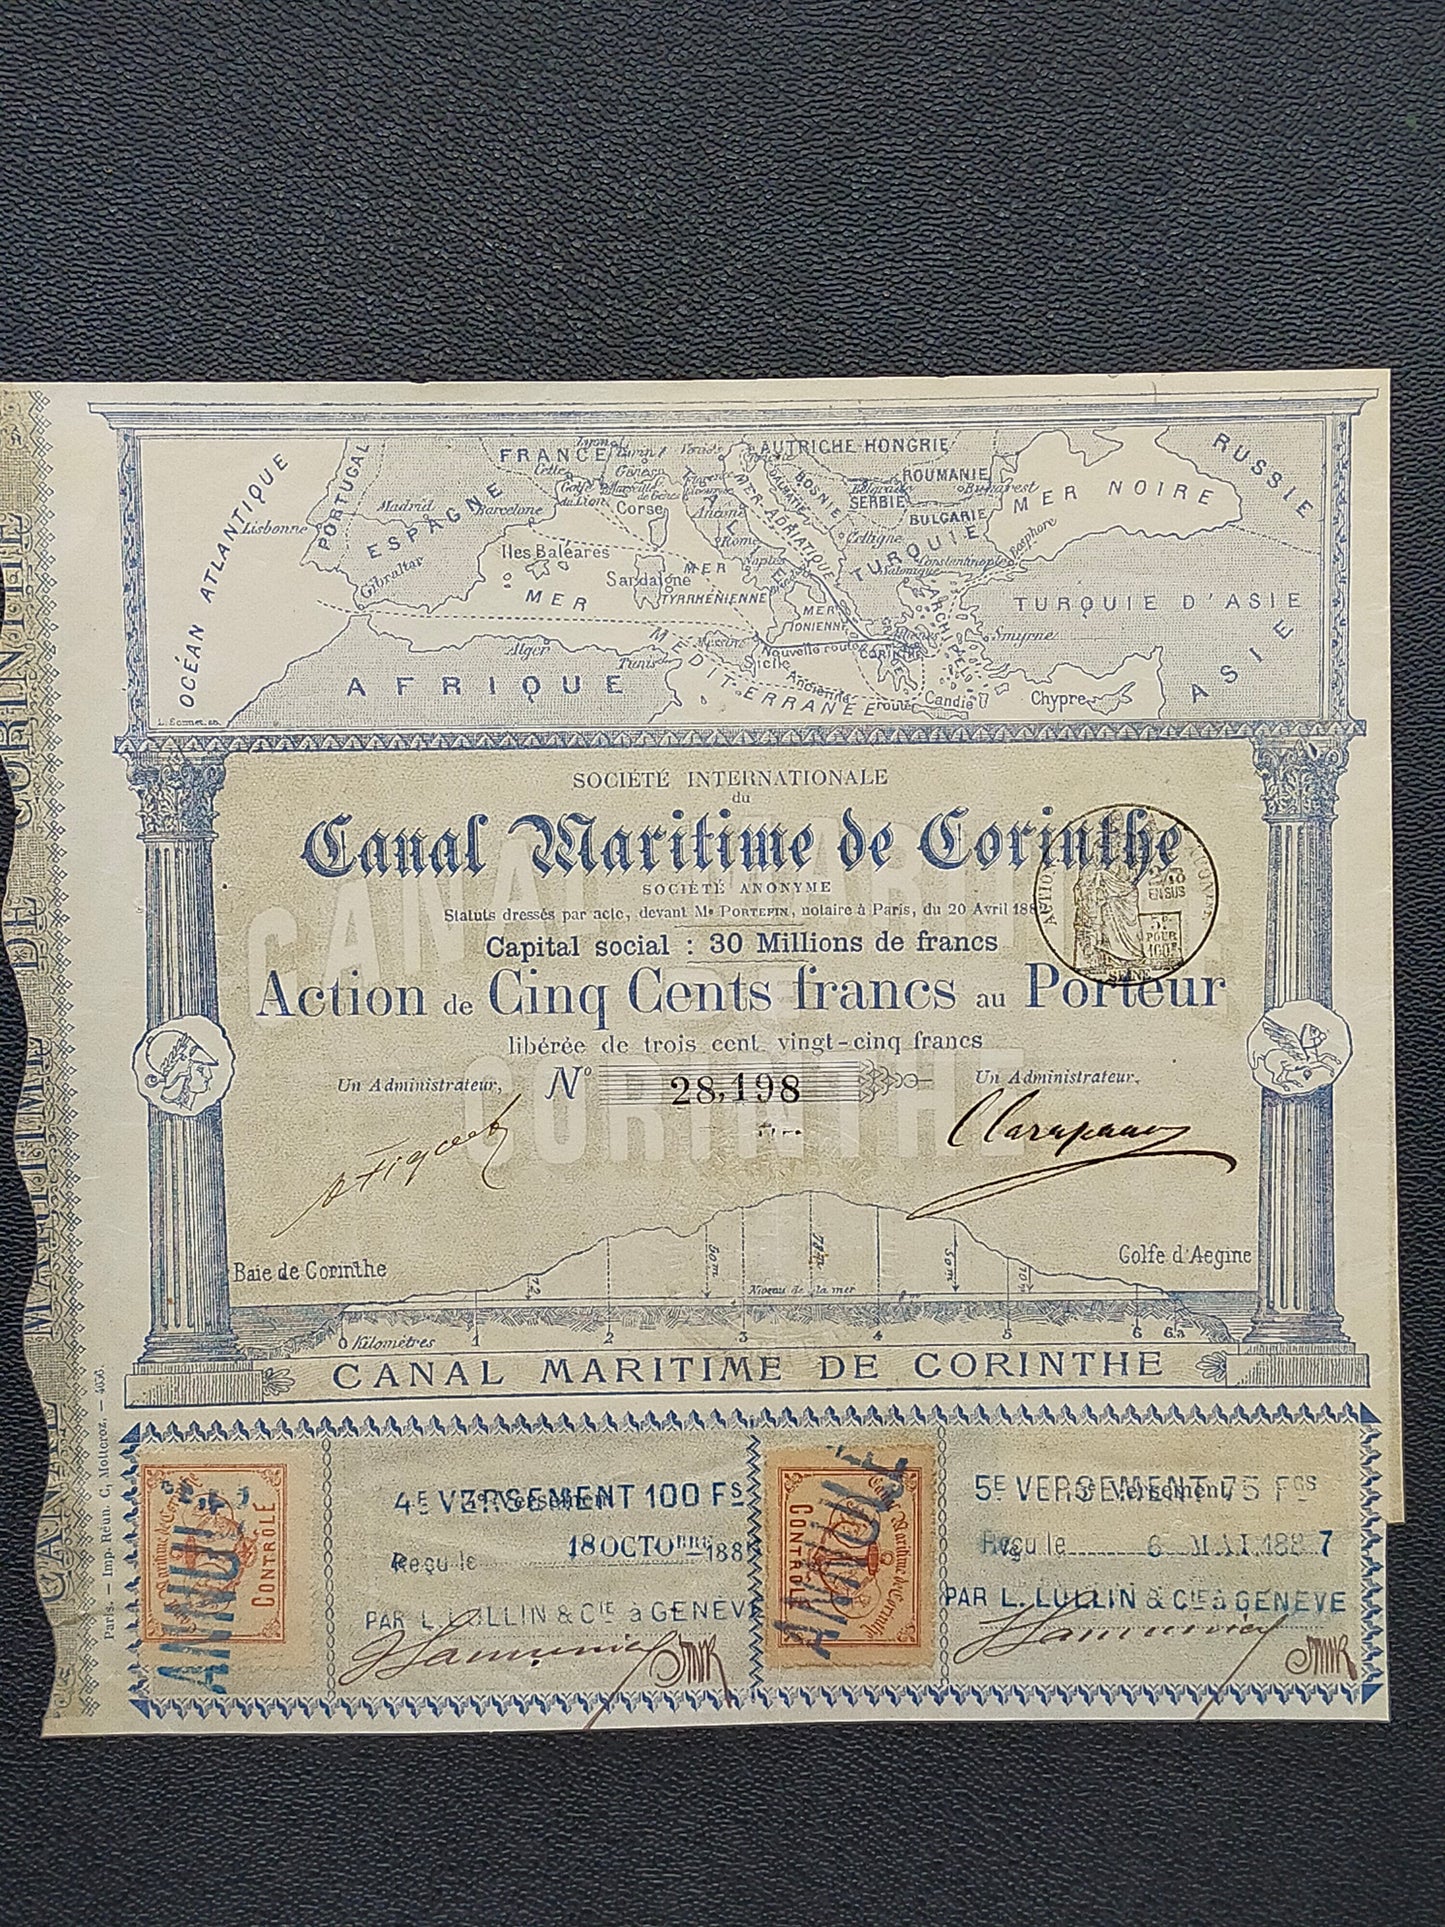 OCÉAN ATLANTIQUE
PORTUGAL
Lisbonne
Madrid
ESPAGNE
Barcelone
Gibraltar
FRANCE
Lyon
Turin
Cette
Gênes
Golfe du Lion
Marseille
Corse
Iles Baléares
Sardaigne
MER TYRRHÉNIENNE
MER MÉDITERRANÉE
Ancône
Rome
Naples
MER ADRIATIQUE
DALMATIE
AUTRICHE-HONGRIE
BOSNIE
Belgrade
SERBIE
ROUMANIE
Bukarest
BULGARIE
Cettigne
TURQUIE
Constantinople
Salonique
Bosphore
MER NOIRE
RUSSIE
TURQUIE D'ASIE
ASIE
MER IONIENNE
Messine
Sicile
Nouvelle route
Ancienne route
CORINTHE
ARCHIPEL
Smyrne
Candie
Chypre
Alger
Tunis
AFRIQUE
SOCIÉTÉ INTERNATIONALE
du
Canal Maritime de Corinthe
SOCIÉTÉ ANONYME
Statuts dressés par acte, devant Me PORTEFIN, notaire à Paris, du 20 Avril 188
Capital social : 30 Millions de francs
Action de Cinq Cents francs au Porteur
libérée de trois cent vingt-cinq francs
Un Administrateur, No 28,198 Un Administrateur,
CANAL MARITIME DE CORINTHE
EN SUS
POUR 100
SEINE
Baie de Corinthe
Golfe d'Aegine
50m 78m 50m
Niveau de la mer
0 Kilomètres 1 2 3 4 5 6
CANAL MARITIME DE CORINTHE
4E VERSEMENT 100 Fs
Versement
Reçu le 18 OCTOBRE 188
PAR L. LULLIN & CIE à GENEVE
5E VERSEMENT 75 FGS
Versement
Reçu le 6 MAI 1887
PAR L. LULLIN & CIE à GENEVE
Canal Maritime de Corinthe
CONTRÔLE
ANNULÉ
Canal Maritime de Corinthe
CONTRÔLE
ANNULÉ
Paris. — Imp. Réun. C, Motteroz. — 4056.
CANAL MARITIME DE CORINTHE